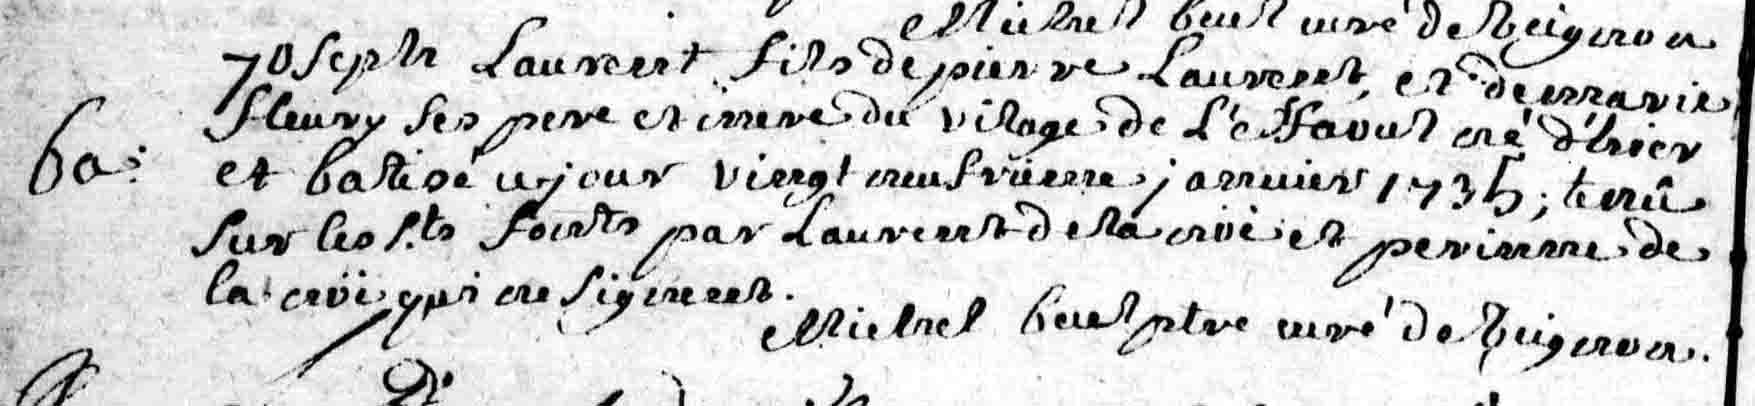 Michel beul curé de Guignon
Joseph Laurent fils de pierre Laurent, et de marie
fleury ses pere et mere du vilage de L'e né d'hier
ba: et batisé ce jour vingt neufvieme janvier 1735; tenû
sur les s.ts fonts par Laurent de la croi et perinne de
la croi qui ne signent.
Michel beul ptre curé de